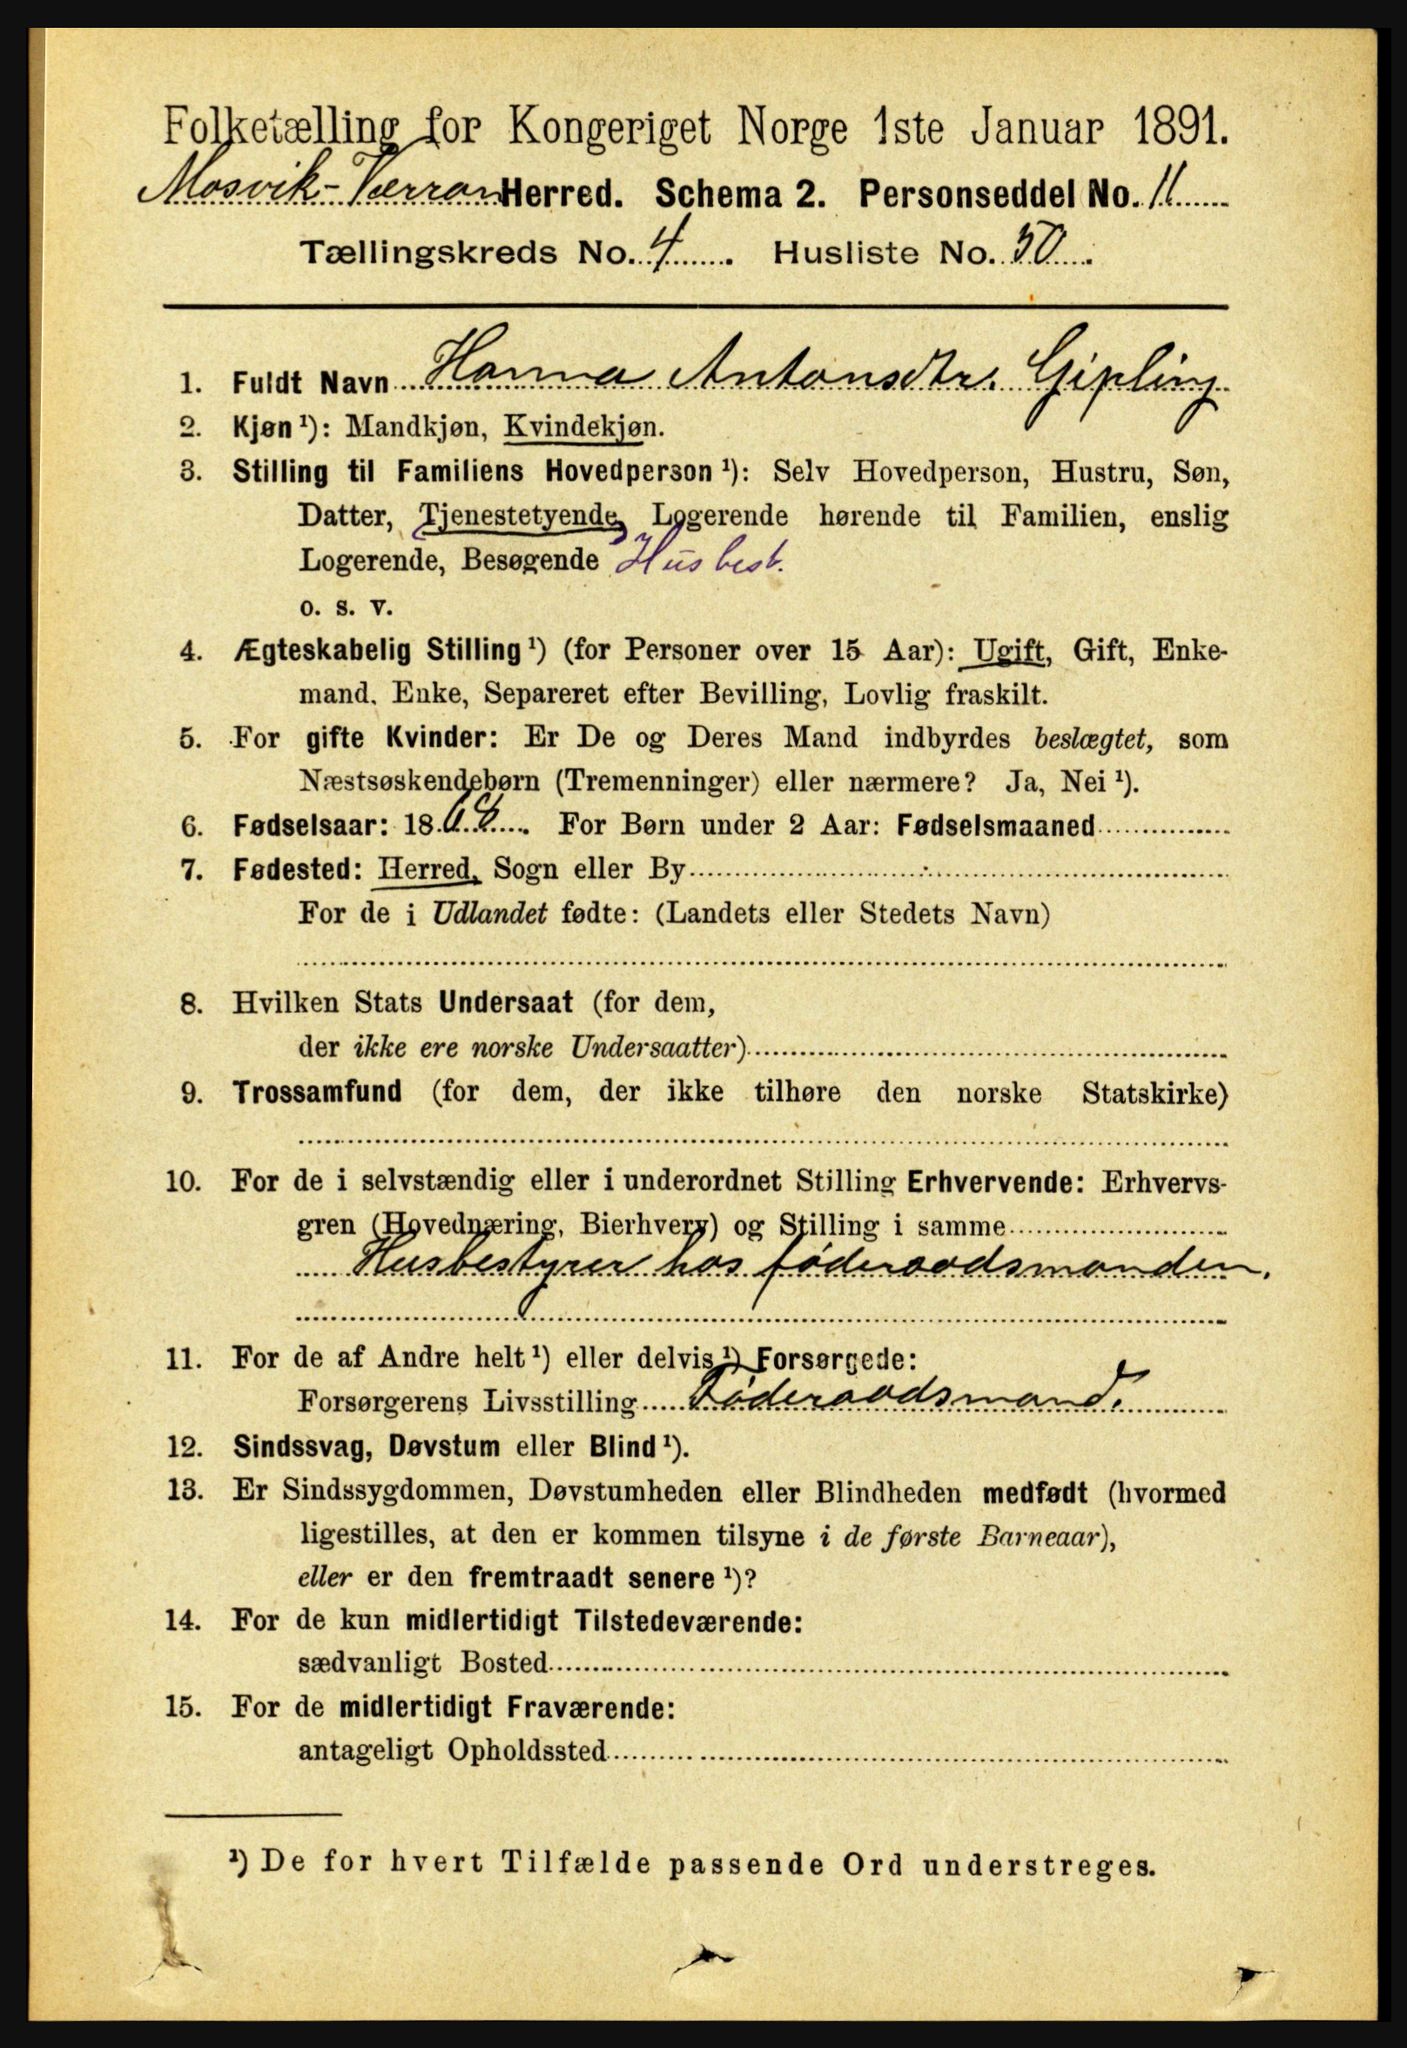 Folketælling for Kongeriget Norge 1ste Januar 1891.
Mosvik-Værran Herred. Schema 2. Personseddel No. 11
Tællingskreds No. 4. Husliste No. 50.
1. Fuldt Navn Hanna Antonsdtr. Gipling
2. Kjøn ¹): Mandkjøn, Kvindekjøn.
3. Stilling til Familiens Hovedperson ¹): Selv Hovedperson, Hustru, Søn,
Datter, Tjenestetyende, Logerende hørende til Familien, enslig
Logerende, Besøgende Husbest.
o. s. v.
4. Ægteskabelig Stilling ¹) (for Personer over 15 Aar): Ugift, Gift, Enke-
mand, Enke, Separeret efter Bevilling, Lovlig fraskilt.
5. For gifte Kvinder: Er De og Deres Mand indbyrdes beslægtet, som
Næstsøskendebørn (Tremenninger) eller nærmere? Ja, Nei ¹).
6. Fødselsaar: 18 . For Børn under 2 Aar: Fødselsmaaned
7. Fødested: Herred, Sogn eller By
For de i Udlandet fødte: (Landets eller Stedets Navn)
8. Hvilken Stats Undersaat (for dem,
der ikke ere norske Undersaatter)
9. Trossamfund (for dem, der ikke tilhøre den norske Statskirke)
10. For de i selvstændig eller i underordnet Stilling Erhvervende: Erhvervs-
gren (Hovednæring, Bierhverv) og Stilling i samme
Husbestyrer hos føderaadsmanden.
11. For de af Andre helt ¹) eller delvis ¹) Forsørgede:
Forsørgerens Livsstilling Føderaadsmand.
12. Sindssvag, Døvstum eller Blind ¹).
13. Er Sindssygdommen, Døvstumheden eller Blindheden medfødt (hvormed
ligestilles, at den er kommen tilsyne i de første Barneaar),
eller er den fremtraadt senere ¹)?
14. For de kun midlertidigt Tilstedeværende:
sædvanligt Bosted
15. For de midlertidigt Fraværende:
antageligt Opholdssted
¹) De for hvert Tilfælde passende Ord understreges.